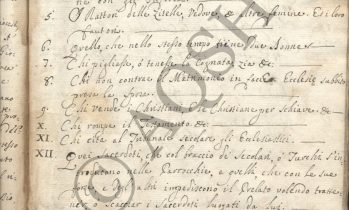 5. O Rattori delle Zitelle, Vedove, & altre femine. Et i loro
fautori.
6. Quello, che nello stesso tempo tiene Due Donne
7. Chi pigliasse, o tenesse la Cognata, zia &c
8. Chi non contrae il Matrimonio in faccia Ecclesiæ
la Sposa.
9. Chi vende i Christiani, o le Christiane per Schiave. &c
X. Chi rompe il Testamento. &c
XI. Chi cita al Tribunale secolare gli Ecclesiastici.
XII. Quei Sacerdoti, che col braccio di Secolari, o
nelle Parrocchie, e quella che con le sue
impediscono il Prelato volendo
o scacciar i Sacerdoti da
© AOSH